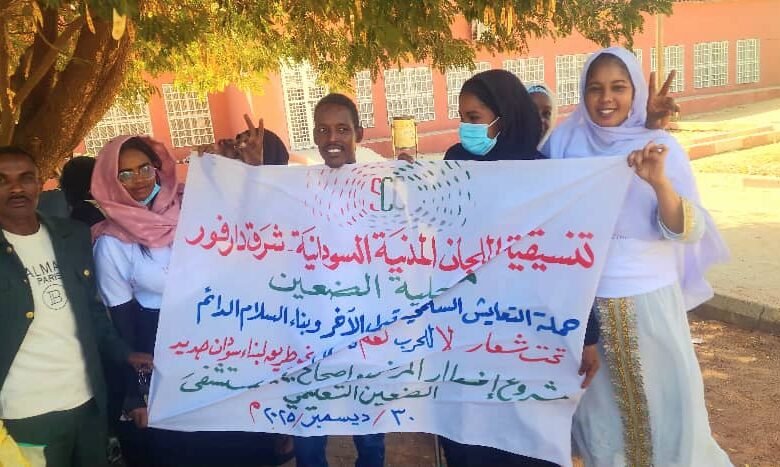 SC
تنسيقية اللجان المدنية السودانية - شرق دارفور
محلية الضعين
حملة التعايش السلمي قبول الآخر وبناء السلام الدائم
تحت شعار لا للحرب نعم طريق لبناء سودان جديد
مشروع إفطار المرضى مستشفى
الضعين التعليمي
٣٠ / ديسمبر / ٢٠٢٥م
ALMA
PARIS
B